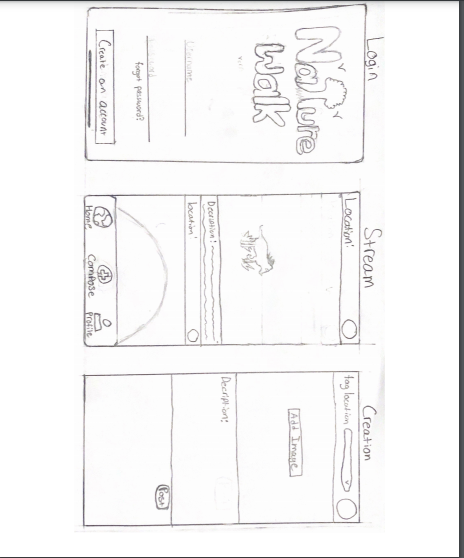 Login
Nature
Walk
Username
forgot password?
Create an account
Stream
Location:
Decription:
location:
Home
Compose
Profile
Creation
tag location
Add Image
Decription:
Post